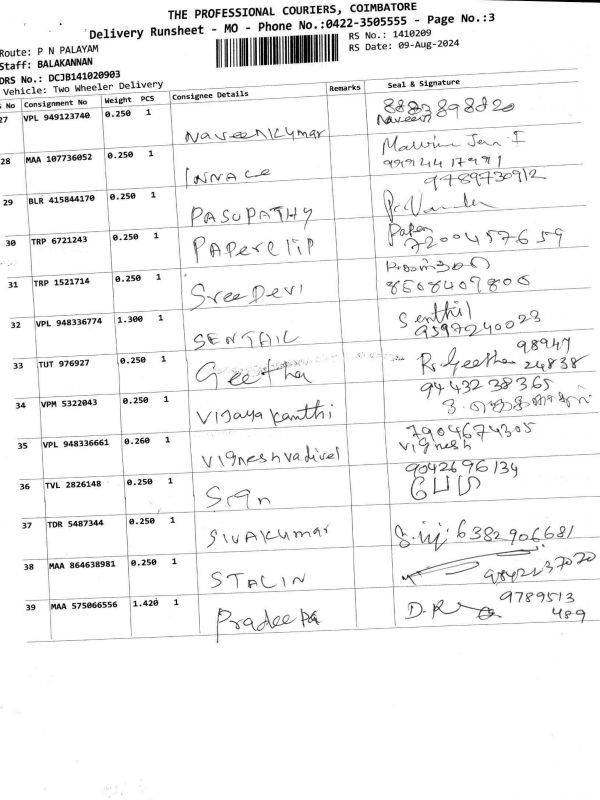 THE PROFESSIONAL COURIERS, COIMBATORE
Delivery Runsheet - MO - Phone No.:0422-3505555 - Page No.:3
Route: P N PALAYAM
RS No.: 1410209
Staff: BALAKANNAN
RS Date: 09-Aug-2024
DRS No.: DCJB141020903
Vehicle: Two Wheeler Delivery
S No Consignment No Weight PCS Consignee Details Remarks Seal & Signature
27 VPL 949123740 0.250 1 Naveenkumar 8883898820
Naveen
28 MAA 107736052 0.250 1 INNACE
9994417991
29 BLR 415844170 0.250 1 PASUPATHY 9789730912
30 TRP 6721243 0.250 1 PAPerclip
7200457659
31 TRP 1521714 0.250 1 Sree Devi
8508407806
32 VPL 948336774 1.300 1 SENTAIL Senthil
9597240023
33 TUT 976927 0.250 1 Geetha R. Geetha 98947
24838
34 VPM 5322043 0.250 1 Vijaya Kanthi 9443238365
35 VPL 948336661 0.260 1 Vigneshvadivel 7904674305
Vignesh
36 TVL 2826148 0.250 1 9042696134
37 TDR 5487344 0.250 1 SIVAKUMAR 6382906681
38 MAA 864638981 0.250 1 STALIN
39 MAA 575066556 1.420 1 Pradeepa D.R 9789513
489